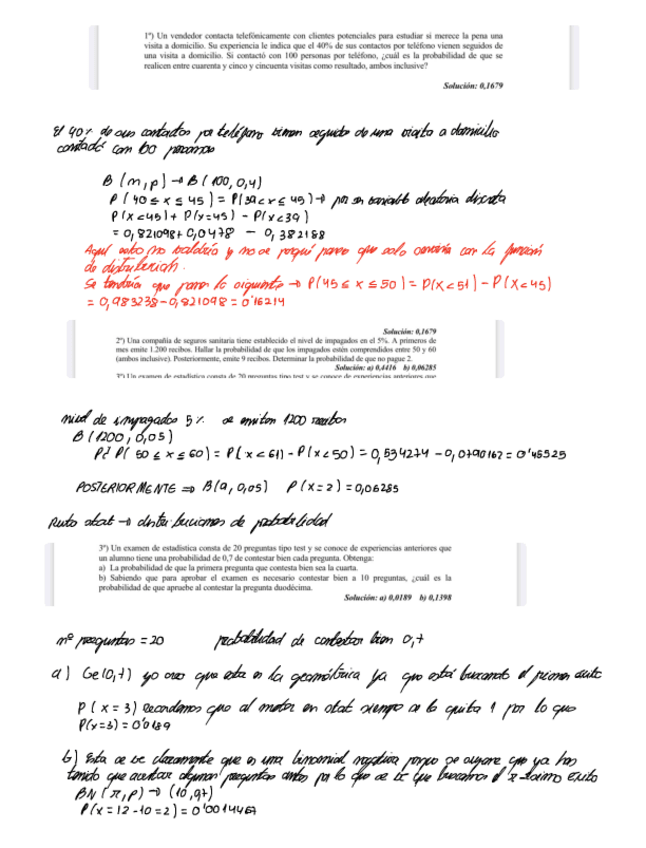 1º) Un vendedor contacta telefónicamente con clientes potenciales para estudiar si merece la pena una
visita a domicilio. Su experiencia le indica que el 40% de sus contactos por teléfono vienen seguidos de
una visita a domicilio. Si contactó con 100 personas por teléfono, ¿cuál es la probabilidad de que se
realicen entre cuarenta y cinco y cincuenta visitas como resultado, ambos inclusive?
Solución: 0,1679
El 40% de sus contactos por teléfono vienen seguido de una visita a domicilio
contactó con 100 personas
B (m, p) → B (100, 0,4)
P (40 ≤ x ≤ 45) = P(39 < x ≤ 45) → por ser variable aleatoria discreta
P(x < 45) + P(x=45) - P(x < 39)
= 0,821098 + 0,0478 - 0,382188
Aquí esto no valdría y no se porqué parece que solo serviría con la función
de distribución.
Se tendría que poner lo siguiente → P(45 ≤ x ≤ 50) = P(x < 51) - P(x < 45)
= 0,983238 - 0,821098 = 0'16214
Solución: 0,1679
2º) Una compañía de seguros sanitaria tiene establecido el nivel de impagados en el 5%. A primeros de
mes emite 1.200 recibos. Hallar la probabilidad de que los impagados estén comprendidos entre 50 y 60
(ambos inclusive). Posteriormente, emite 9 recibos. Determinar la probabilidad de que no pague 2.
Solución: a) 0,4416 b) 0,06285
3º) Un examen de estadística consta de 20 preguntas tipo test y se conoce de experiencias anteriores que
nivel de impagados 5% se emiten 1200 recibos
B (1200, 0,05)
P¿ P( 50 ≤ x ≤ 60) = P( x < 61) - P( x < 50) = 0,534274 - 0,0790162 = 0'45525
POSTERIORMENTE ⇒ B(9, 0,05) P(x = 2) = 0,06285
Ruta stat → distribuciones de probabilidad
3º) Un examen de estadística consta de 20 preguntas tipo test y se conoce de experiencias anteriores que
un alumno tiene una probabilidad de 0,7 de contestar bien cada pregunta. Obtenga:
a) La probabilidad de que la primera pregunta que contesta bien sea la cuarta.
b) Sabiendo que para aprobar el examen es necesario contestar bien a 10 preguntas, ¿cuál es la
probabilidad de que apruebe al contestar la pregunta duodécima.
Solución: a) 0,0189 b) 0,1398
nº preguntas = 20 probabilidad de contestar bien 0,7
a) Ge(0,7) yo creo que esta es la geométrica ya que está buscando el primer éxito
P ( x = 3) Recordemos que al meter en stat siempre se le quita 1 por lo que
P(x=3) = 0'0189
b) Esta se ve claramente que es una binomial negativa porque se supone que ya has
tenido que acertar algunas preguntas antes por lo que se ve que buscamos el r-esimo exito
BN (r, p) → (10, 0,7)
P(x = 12 - 10 = 2) = 0'0014467